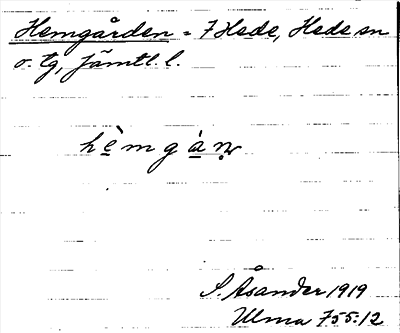 Hemgården = 7 Hede, Hede sn
o. tg, Jämtl. l.
hèmgá̱ṇ
S. Åsander 1919
Ulma 755:12